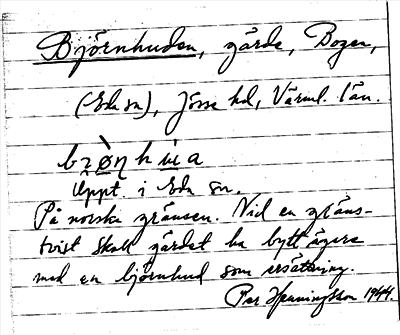 Björnhuden, gärde, Bogen,
(Eda sn), Jösse hd, Värml. län.
Uppt. i Eda sn.
På norska gränsen. Vid en gräns-
tvist skall gärdet ha bytt ägare
med en björnhud som ersättning.
Per Henningsson 1944.